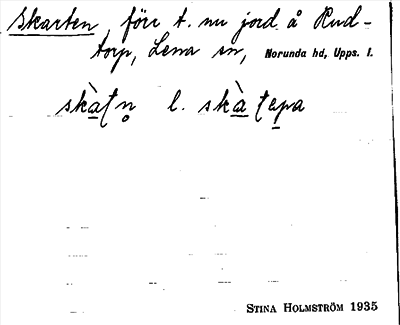 Skarten förr t. nu jord å Rud-
torp, Lena sn, Norunda hd, Upps. l.
skàtn̥ l. skàtepa
STINA HOLMSTRÖM 1935